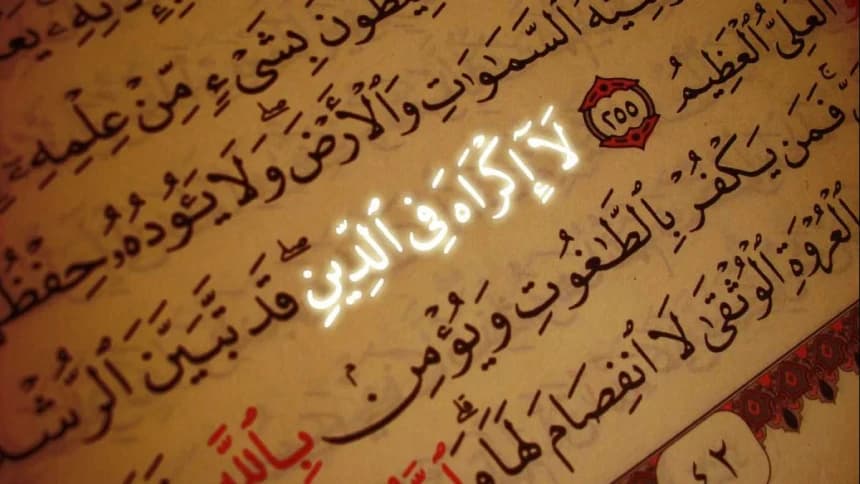 يطُونَ بِشَىْءٍ مِّنْ عِلْمِهِۦٓ
ٱلسَّمَٰوَٰتِ وَٱلْأَرْضَ ۖ وَلَا يَـُٔودُهُۥ حِفْظُ
ٱلْعَلِىُّ ٱلْعَظِيمُ ٢٥٥ لَآ إِكْرَاهَ فِى ٱلدِّينِ ۖ قَد تَّبَيَّنَ ٱلرُّشْدُ
فَمَن يَكْفُرْ بِٱلطَّٰغُوتِ وَيُؤْمِنۢ بِٱللَّهِ
ٱلْعُرْوَةِ ٱلْوُثْقَىٰ لَا ٱنفِصَامَ لَهَا ۗ وَٱللَّهُ
٤٢